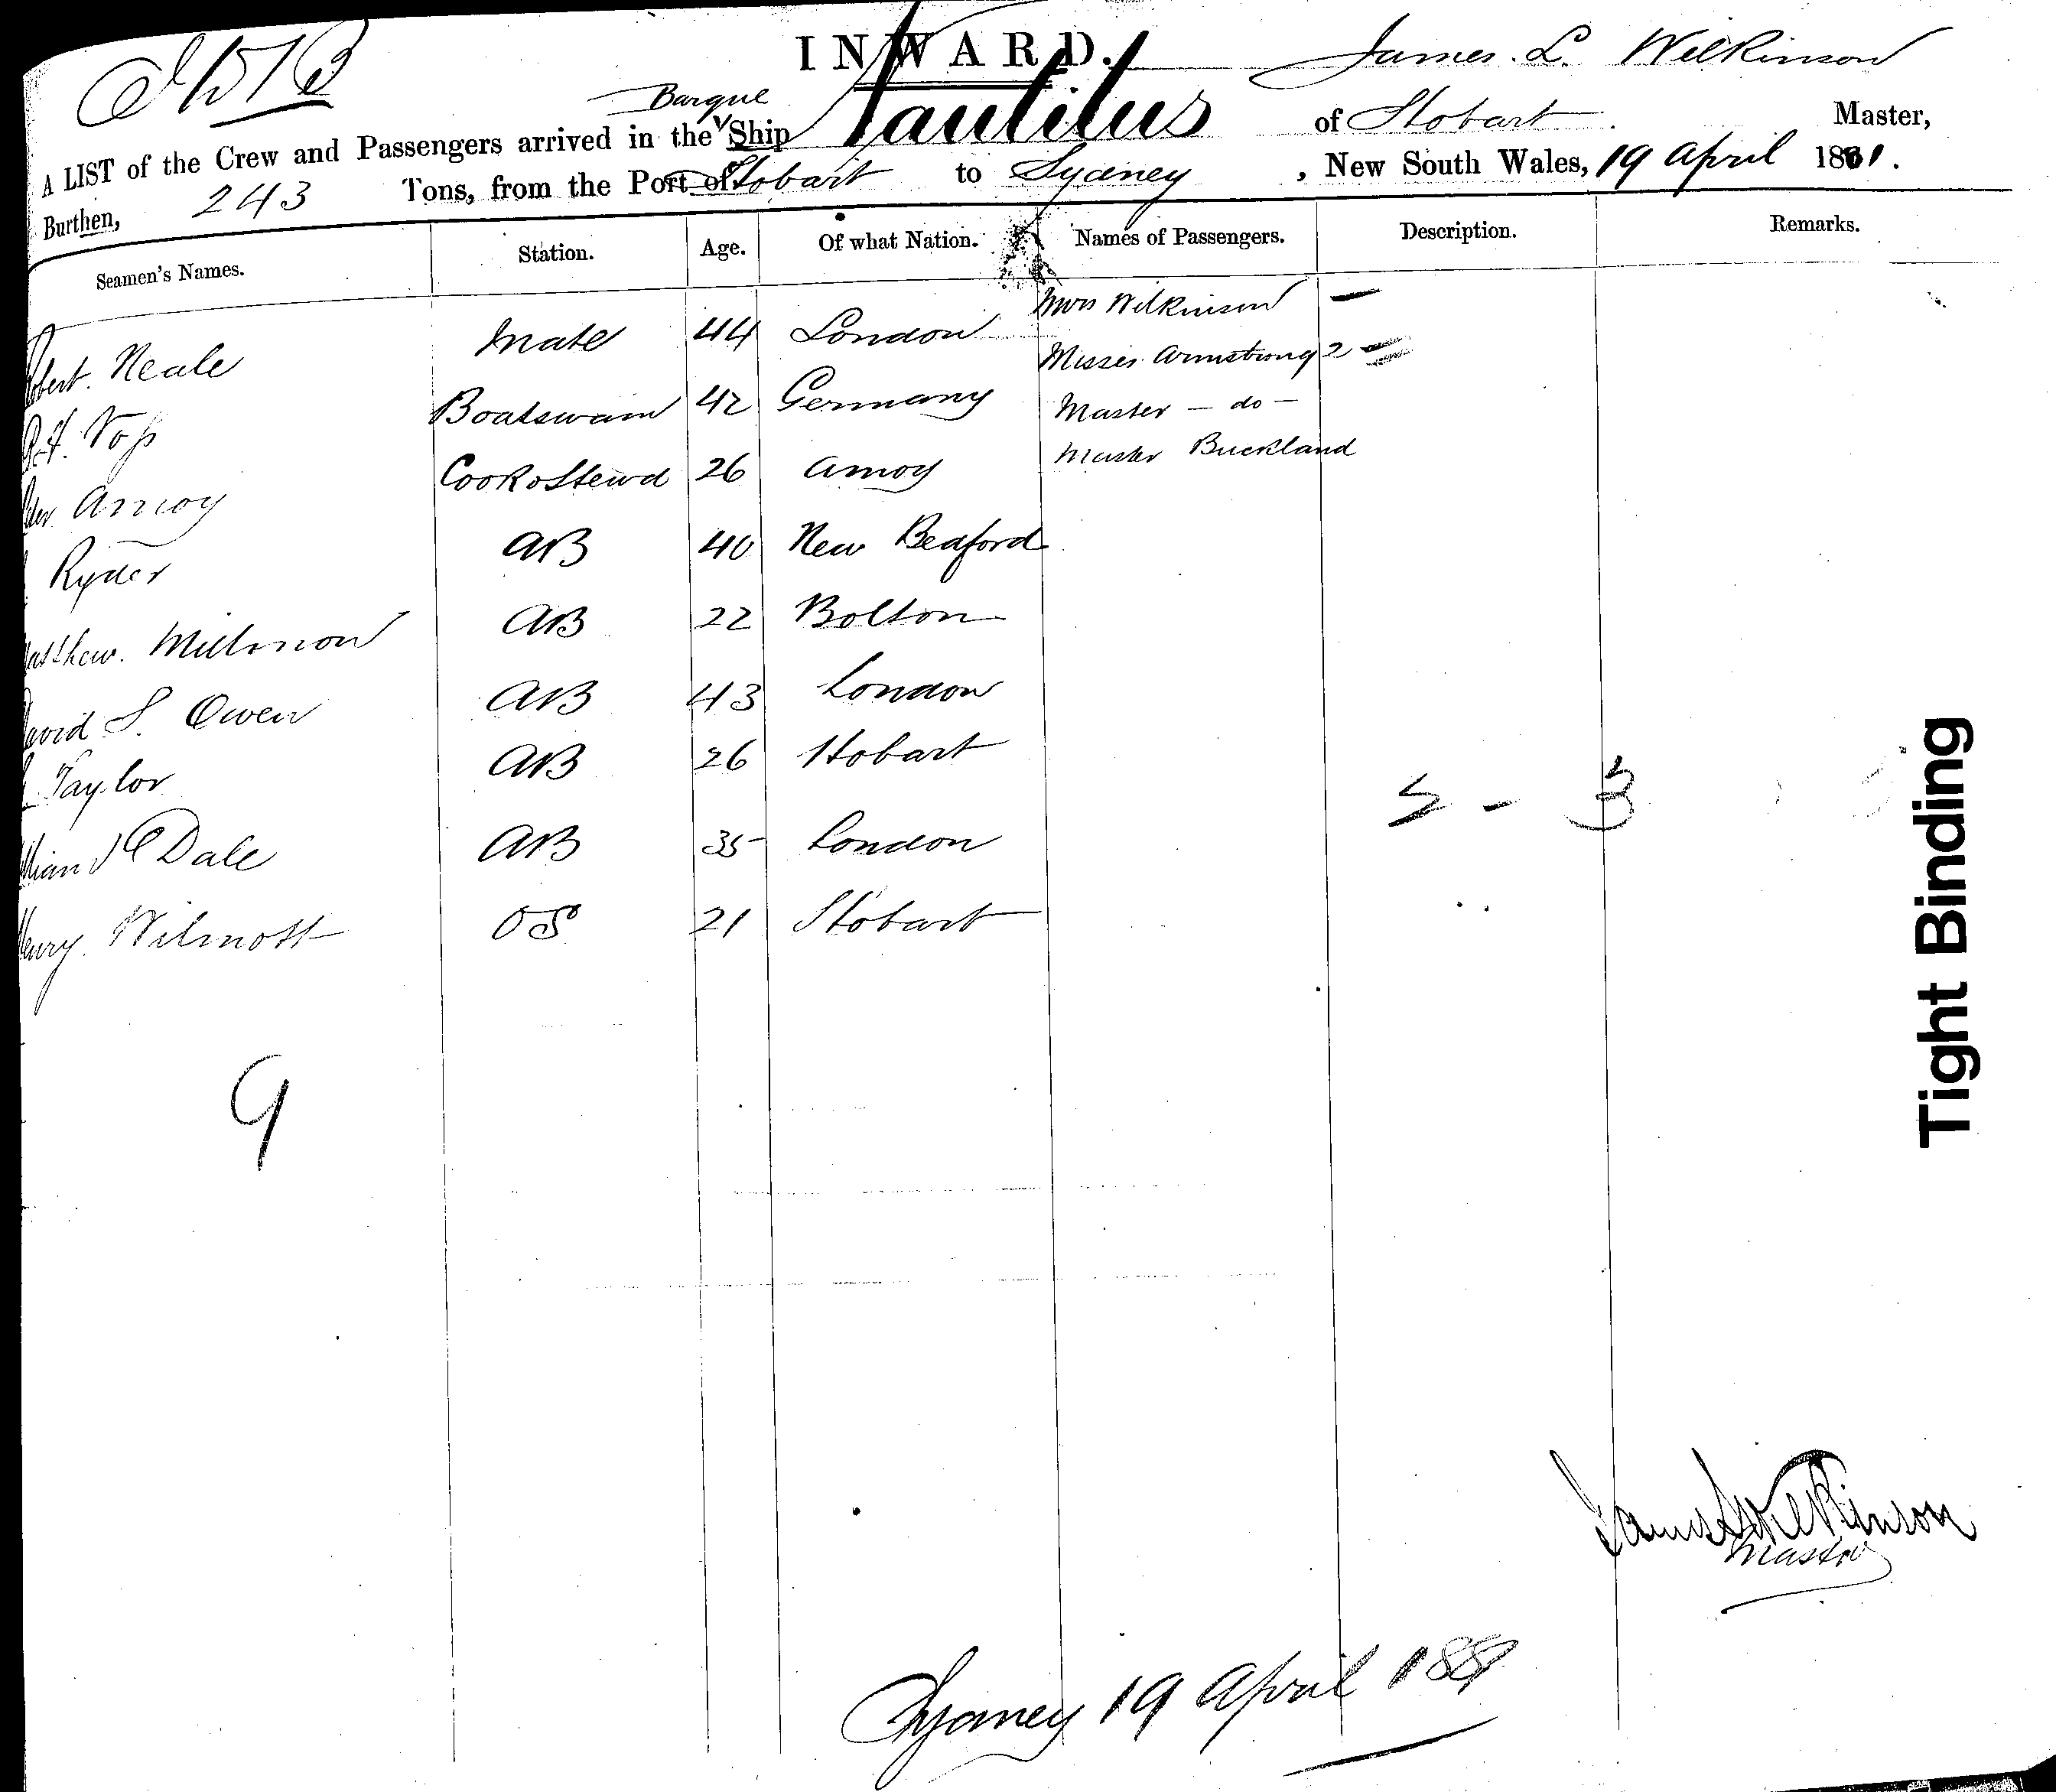 INWARD.
James. L. Wilkinson
Barque
A LIST of the Crew and Passengers arrived in the Ship Nautilus of Hobart Master,
Burthen, 243 Tons, from the Port of Hobart to Sydney, New South Wales, 19 April 1881.
Seamen's Names. Station. Age. Of what Nation. Names of Passengers. Description. Remarks.
Mrs Wilkinson —
obert. Neale Mate 44 London
Misses Armstrong 2 —
Voss Boatswain 42 Germany
Master — do —
Amoy Cook & Stewd 26 Amoy
Master Buckland
Ryder AB 40 New Bedford
atthew. AB 22 Bolton
avid S. Owen AB 43 London
Taylor AB 26 Hobart
Dale AB 35 London
5 - 3
enry. Wilmott OS 21 Hobart
9
Tight Binding
James L Wilkinson
Master
Sydney 19 April 1881